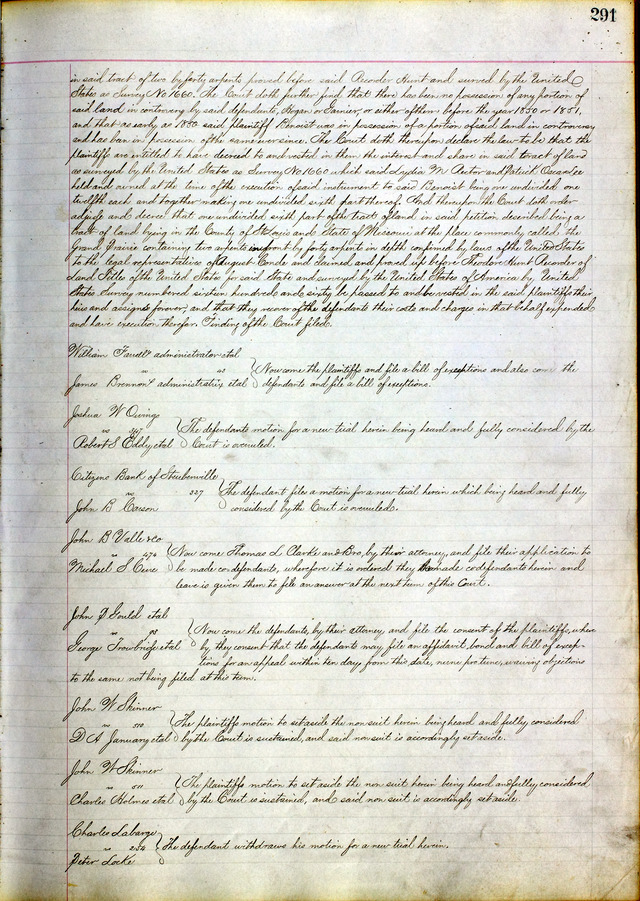 291
in said tract of two by forty arpents proved before said Recorder Hunt and surved by the United
States as Survey No 1660. The Court doth further find that there has been no possession of any portion of
said land in controversy by said defendants, Hogan or Garnier, or either of them before the year 1850 or 1851,
and that as early as 1850 said plaintiff Benoist was in possession of a portion of said land in controversy
and has ban in possession of the same ever since. The Court doth thereupon declare the law to be that the
plaintiffs are intitled to have decreed to and vested in them the interest and share in said tract of land
as surveyed by the United States as Survey No 1660 which said Lydia M Rector and Patrick
held and owned at the time of the execution of said instrument to said Benoist being one undivided one
twelfth each and together making one undivided sixth part thereof. And thereupon the Court doth order
adjudge and decree that one undivided sixth part of the tract of land in said petition described being a
tract of land lying in the County of St Louis and State of Missouri at the place commonly called the
Grand Prairie containing two arpents in front by forty arpents in depth confirmed by laws of the United States
to the legal representatives of August Conde and claimed and proved up before Theodore Hunt Recorder of
Land Titles of the United States for said State and surveyed by the United States of America by United
States Survey numbered sixteen hundred and sixty be passed to and be vested in the said plaintiffs their
heirs and assigns forever, and that they recover of the defendants their costs and charges in that behalf expended
and have execution therefor. Finding of the Court filed.
William administrator etal
vs
Now come the plaintiffs and file a bill of exceptions and also come the
James Brennan's administratrix etal
defendants and file a bill of exceptions.
Joshua W Owings
vs
The defendants motion for a new trial herein being heard and fully considered by the
Robert S Eddy etal
Court is overruled.
Citizens Bank of Steubenville
vs 327
The defendant file a motion for a new trial herein which being heard and fully
John B Carson
considered by the Court is overruled.
John B Valle & co
vs 474
Now come Thomas L Clarke and Bro, by their attorney, and file their application to
Michael S Cere
be made co-defendants, wherefore it is ordered they be made co-defendants herein and
leave is given them to file an answer at the next term of this Court.
John S Gould etal
vs
Now come the defendants, by their attorney, and file the consent of the plaintiffs, where
George Trowbridge etal
by they consent that the defendants may file an affidavit, bond and bill of excep-
tions for an appeal within ten days from this date, nunc pro tunc, waiving objections
to the same not being filed at this term.
John W Skinner
vs 510
The plaintiffs motion to set aside the non suit herein being heard and fully considered
D A January etal
by the Court is sustained, and said non suit is accordingly set aside.
John W Skinner
vs 511
The plaintiffs motion to set aside the non suit herein being heard and fully considered
Charles Holmes etal
by the Court is sustained, and said non suit is accordingly set aside.
Charles Labarge
vs 254
The defendant withdraws his motion for a new trial herein.
Peter Locke